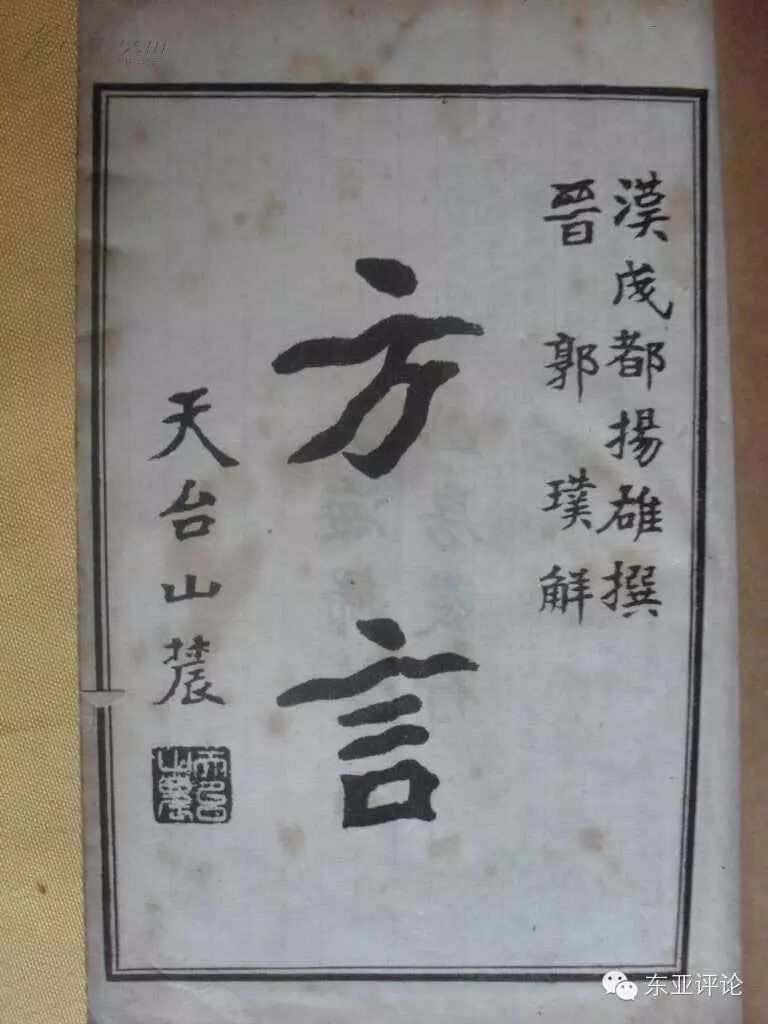 漢成都揚雄撰
晉 郭璞解
方言
天台山農
天台山農
东亚评论